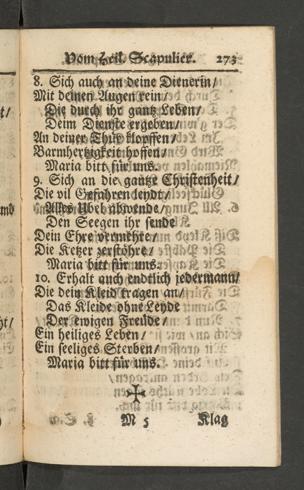 Vom heil. Scapulier. 273
8. Sich auch an deine Dienerin/
Mit deinen Augen rein/
Die durch ihr gantz Leben/
Deim Dienste ergeben/
An deiner Thür klopffen/
Barmhertzigkeit hoffen/
Maria bitt für uns.
9. Sich an die gantze Christenheit/
Die vil Gefahren leydt/
Alles Ubel abwende/
Den Seegen ihr sende
Dein Ehre vermehre/
Die Ketzer zerstöhre/
Maria bitt für uns.
10. Erhalt auch endtlich jedermann/
Die dein Kleid tragen an/
Das Kleide ohne Leyde
Der ewigen Freude/
Ein heiliges Leben/
Ein seeliges Sterben/
Maria bitt für uns.
M 5 Klag